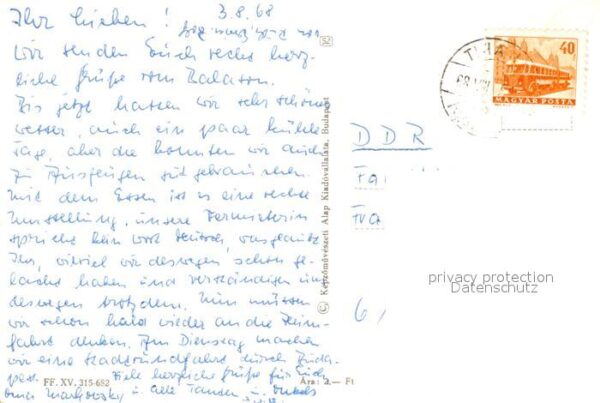 Ihr Lieben! 3.8.68
wir senden Euch recht herz-
liche Grüße vom Balaton.
Bis jetzt hatten wir sehr schönes
Wetter, auch ein paar kühle
Tage, aber die konnten wir auch
zu Ausflügen gut gebrauchen.
Mit dem Essen ist es eine rechte
Umstellung, unsere Vermieterin
spricht kein Wort deutsch, was glaubt
Ihr, wieviel wir deswegen schon ge-
lacht haben und verständigen uns
deswegen trotzdem. Nun müssen
wir schon bald wieder an die Heim-
fahrt denken. Am Dienstag machen
wir eine Stadtrundfahrt durch Buda-
pest. Viele herzliche Grüße für Euch
Oma
u. alle Tanten u. Onkels
FF. XV. 315-682
Ára: 2.— Ft
© Képzőművészeti Alap Kiadóvállalata, Budapest
40
MAGYAR POSTA
DDR
Fa
Fra
6
privacy protection
Datenschutz